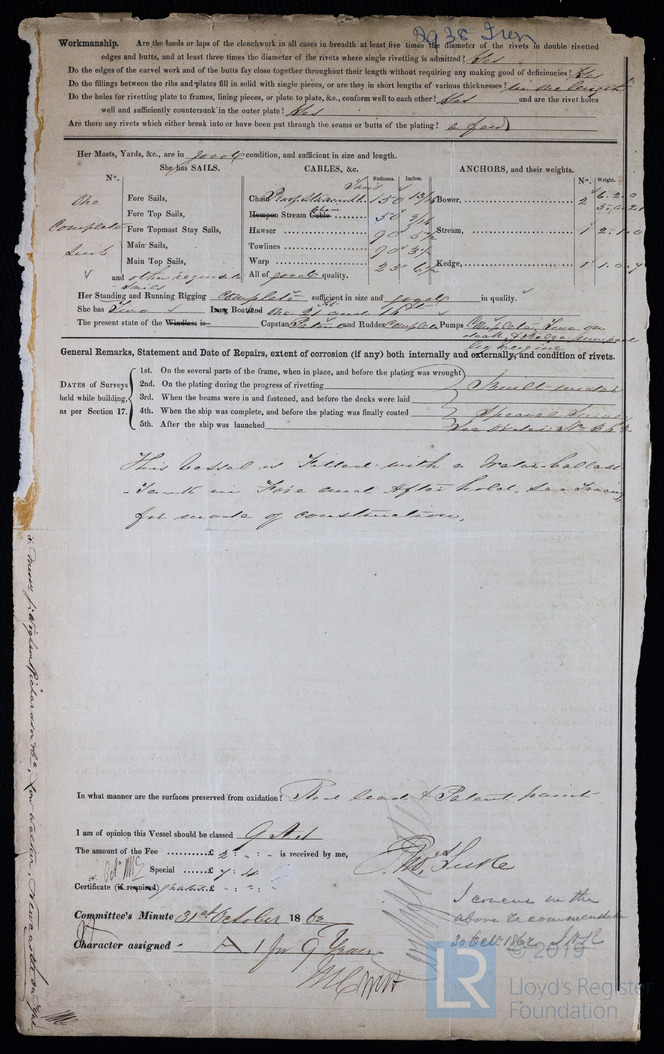 2938 Iron
Workmanship. Are the lands or laps of the clenchwork in all cases in breadth at least five times the diameter of the rivets in double rivetted
edges and butts, and at least three times the diameter of the rivets where single rivetting is admitted? Yes
Do the edges of the carvel work and of the butts fay close together throughout their length without requiring any making good of deficiencies? Yes
Do the fillings between the ribs and plates fill in solid with single pieces, or are they in short lengths of various thicknesses? in one length
Do the holes for rivetting plate to frames, lining pieces, or plate to plate, &c., conform well to each other? Yes and are the rivet holes
well and sufficiently countersunk in the outer plate? Yes
Are there any rivets which either break into or have been put through the seams or butts of the plating? a few
Her Masts, Yards, &c., are in good condition, and sufficient in size and length.
She has SAILS. CABLES, &c. ANCHORS, and their weights.
N°. Fathoms. Inches. N°. Weight.
One Fore Sails, Chain 150 13/16 Bower, 2 6.2.0
Complete Fore Top Sails, Hempen Stream Cable 50 9/16
Fore Topmast Stay Sails, Hawser 90 5 1/2 Stream, 1 2.1.0
Suit Main Sails, Towlines 90 3 1/2
Main Top Sails, Warp Kedge, 1
and other requisite sails All of good quality.
Her Standing and Running Rigging Complete sufficient in size and good in quality.
She has Two Long Boat and one
The present state of the Windlass is Capstan and Rudder Complete Pumps
General Remarks, Statement and Date of Repairs, extent of corrosion (if any) both internally and externally, and condition of rivets.
DATES of Surveys held while building, as per Section 17.
1st. On the several parts of the frame, when in place, and before the plating was wrought
2nd. On the plating during the progress of rivetting Built under
3rd. When the beams were in and fastened, and before the decks were laid
4th. When the ship was complete, and before the plating was finally coated Special Survey
5th. After the ship was launched
This Vessel is Fitted with a Water ballast
Tank in Fore and After hold. See Tracing
for mode of construction.
In what manner are the surfaces preserved from oxidation? Red lead & Patent paint
I am of opinion this Vessel should be classed 9 A 1
The amount of the Fee £ 2 is received by me,
Special £ 7.4
Certificate (if required) gratis £
Committee's Minute 31st October 1862
Character assigned - A 1 for 9 Years
I concur in the
above recommendation
30 Octr 1862
© 2019
LR
Lloyd's Register
Foundation